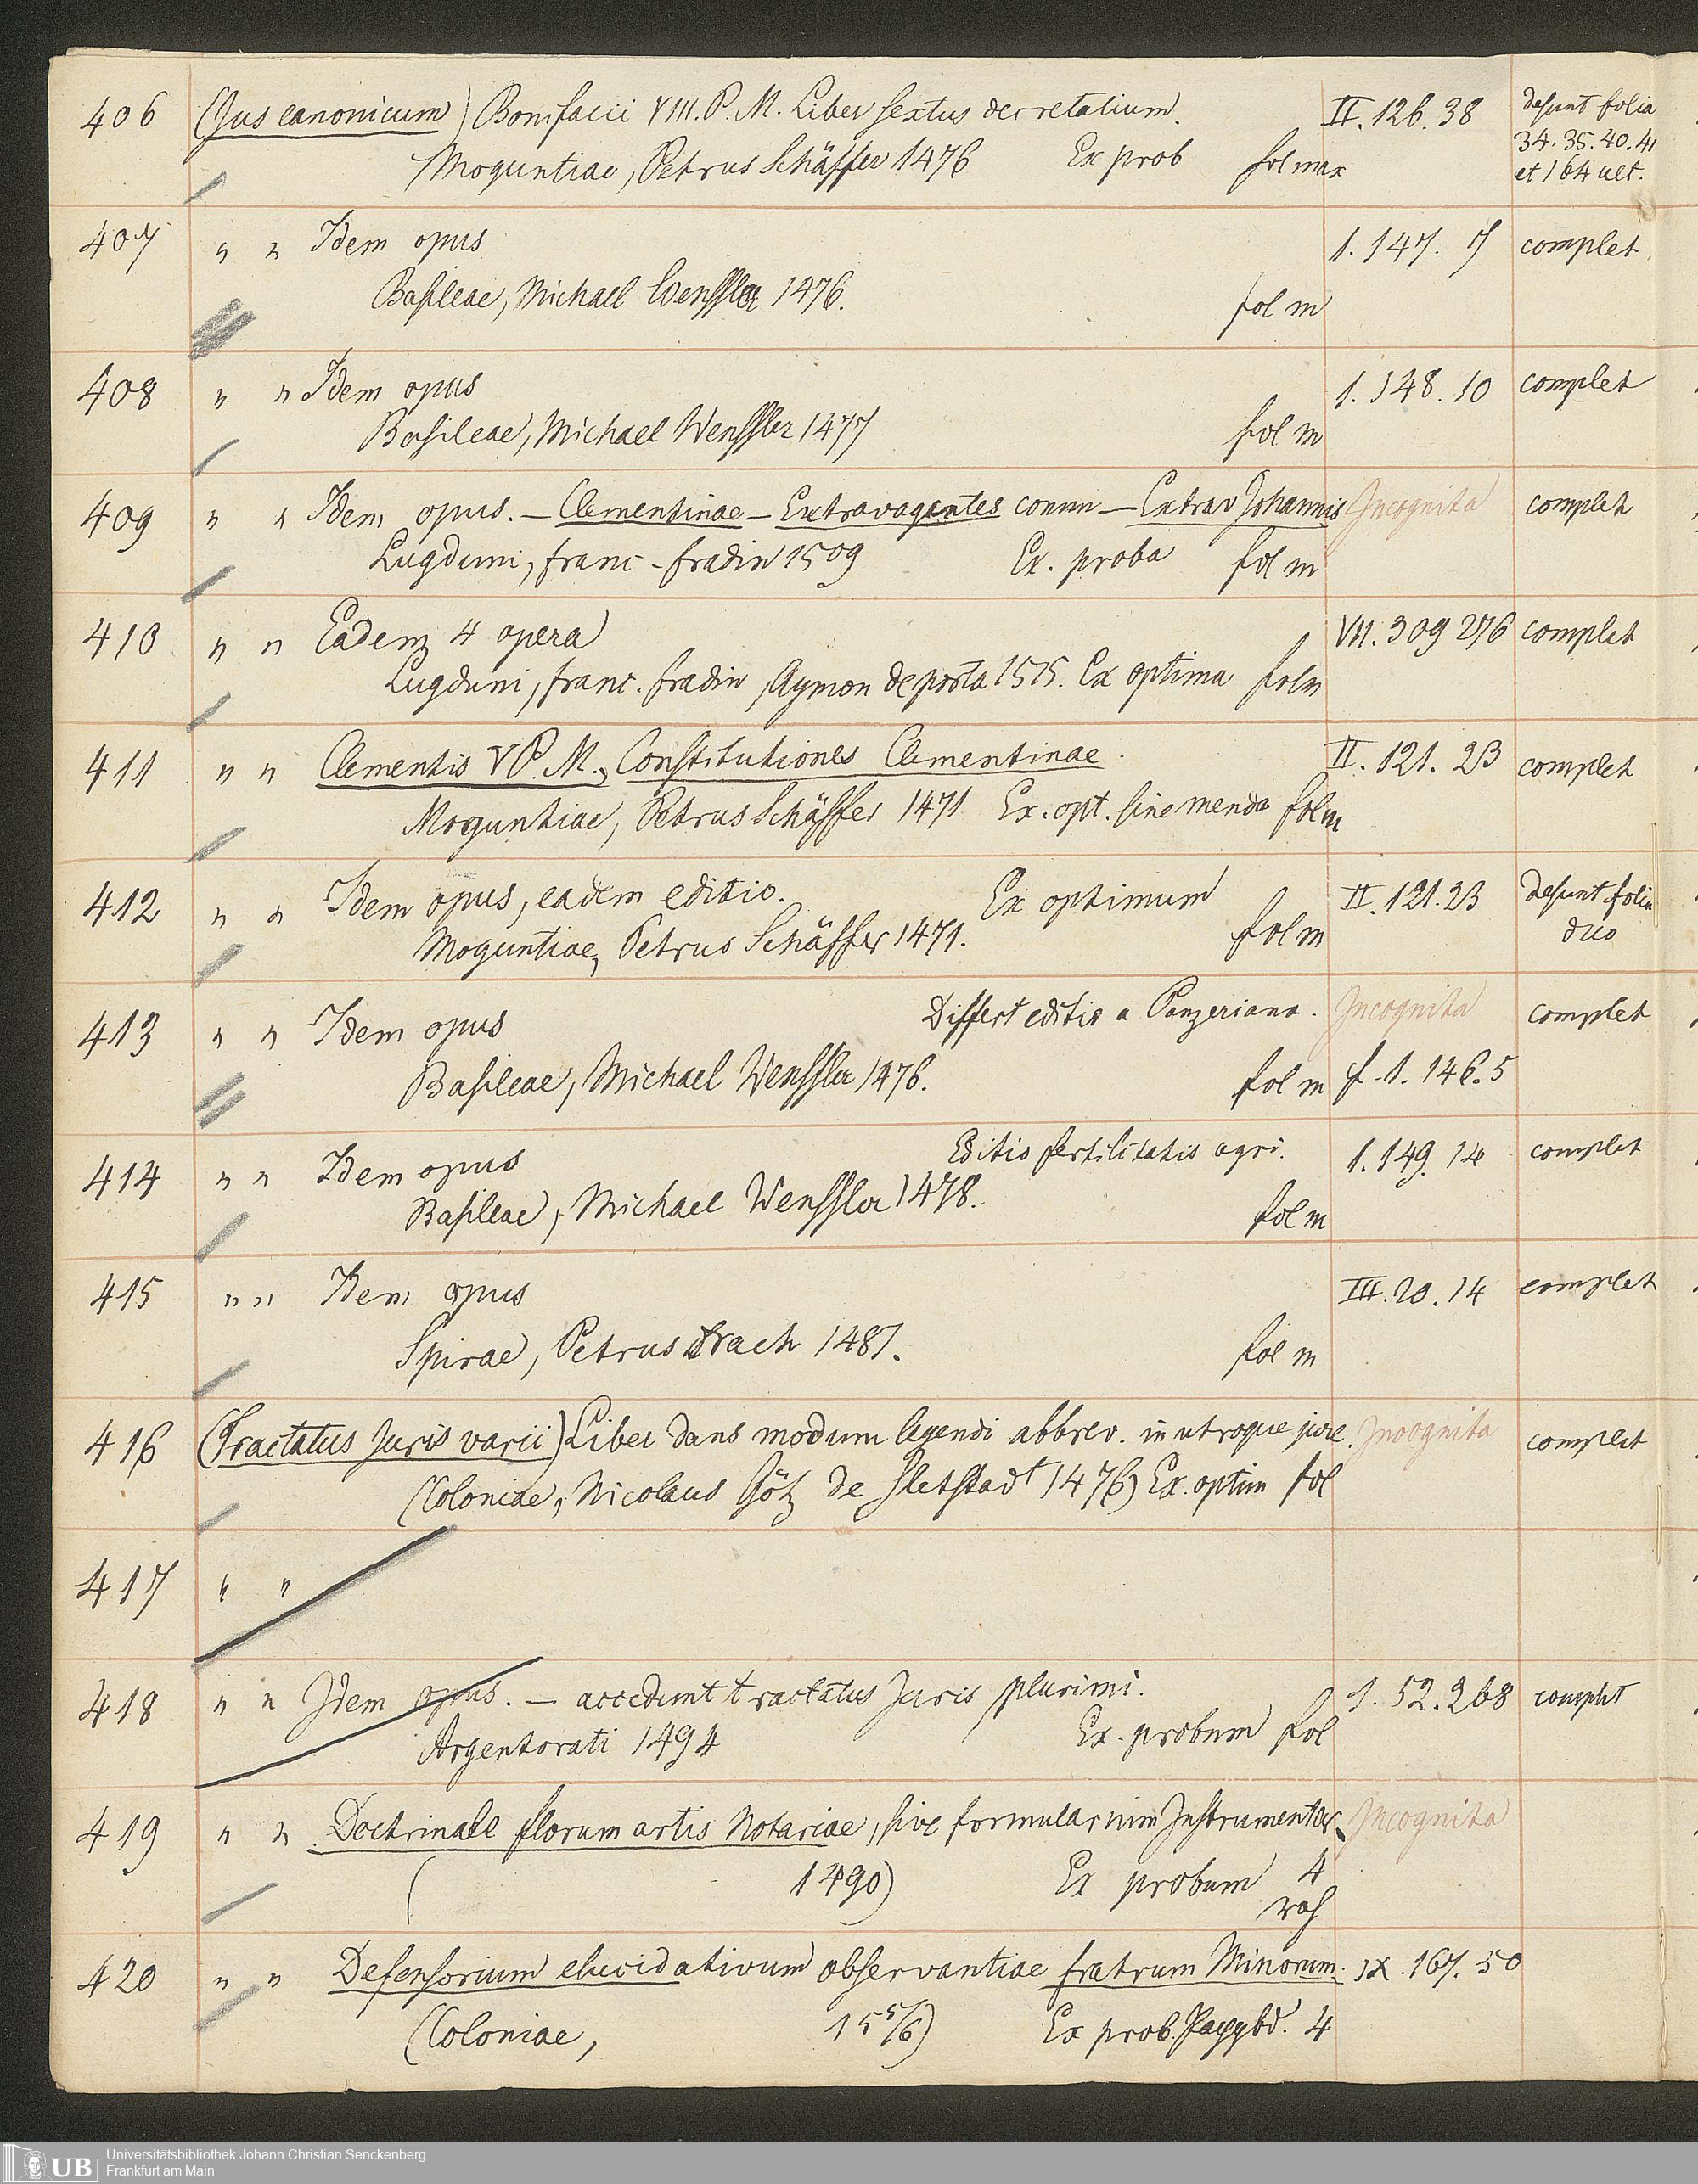 406 (Jus canonicum) Bonifacii VIII. P. M. Liber sextus decretalium. II. 126. 38 desunt folia
34. 35. 40. 41
Moguntiae, Petrus Schäffer 1476 Ex prob fol max et 164 ult.
407 " " Idem opus 1. 147. 7 complet
Basileae, Michael Wenssler 1476. fol m
408 " " Idem opus 1. 148. 10 complet
Basileae, Michael Wenssler 1477 fol m
409 " " Idem opus. — Clementinae — Extravagantes comm — Extrav Johannis Incognita complet
Lugduni, franc - fradin 1509 Ex. proba fol m
410 " " Eadem 4 opera VII. 309 276 complet
Lugduni, franc. fradin, Aymon de porta 1515. Ex optima fol m
411 " " Clementis V P. M., Constitutiones Clementinae. II. 121. 23 complet
Moguntiae, Petrus Schäffer 1471 Ex. opt. sine menda fol m
412 " " Idem opus, eadem editio. Ex optimum II. 121. 23 desunt folia
duo
Moguntiae, Petrus Schäffer 1471. fol m
413 " " Idem opus Differt editio a Panzeriana. Incognita complet
Basileae, Michael Wenssler 1476. fol m f. 1. 146. 5
414 " " Idem opus Editio fertilitatis agri. 1. 149. 14 complet
Basileae, Michael Wenssler 1478. fol m
415 " " Idem opus III. 20. 14 complet
Spirae, Petrus Drach 1481. fol m
416 (Tractatus Juris varii) Liber dans modum legendi abbrev. in utroque jure. Incognita complet
(Coloniae, Nicolaus Götz de Sletstadt 1476) Ex. optim fol
417 " "
418 " " Idem opus. — accedunt tractatus Juris plurimi. 1. 52. 268 complet
Argentorati 1494 Ex. probum fol
419 " " Doctrinale florum artis Notariae, sive formularium Instrumentor. Incognita
( 1490) Ex probum 4
420 " " Defensorium elucidativum observantiae fratrum Minorum. IX. 167. 50
(Coloniae, 15 5/6) Ex prob. 4
UB Universitätsbibliothek Johann Christian Senckenberg
Frankfurt am Main